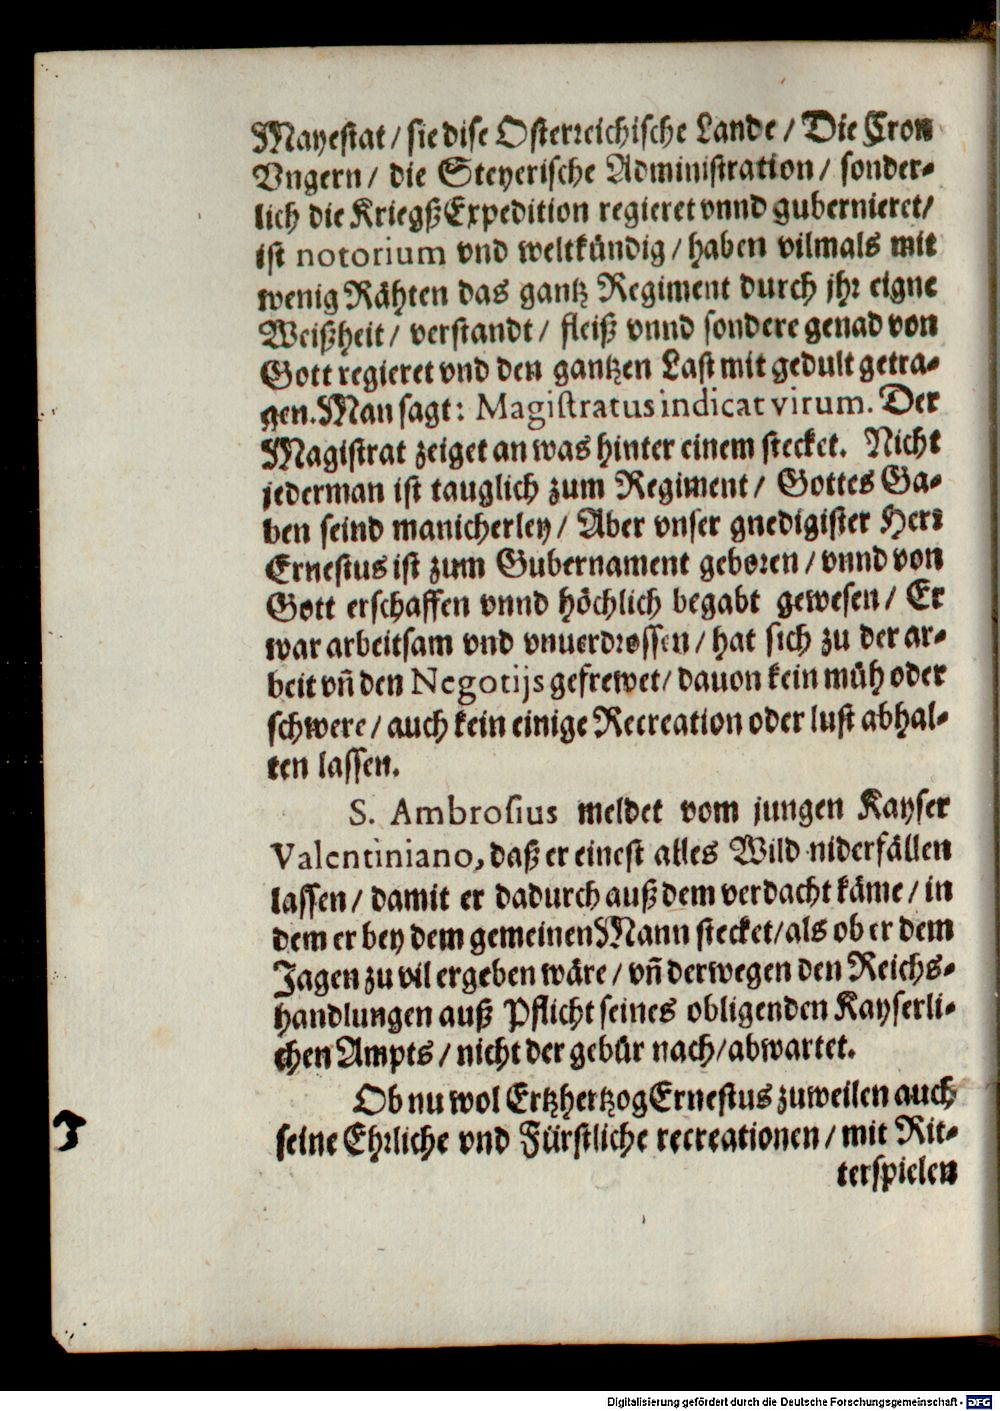 Mayestat / sie dise Osterreichische Lande / Die Cron
Vngern / die Steyerische Administration / sonder-
lich die KriegßExpedition regieret vnnd gubernieret /
ist notorium vnd weltkündig / haben vilmals mit
wenig Rähten das gantz Regiment durch jhr eigne
Weißheit / verstandt / fleiß vnnd sondere genad von
Gott regieret vnd den gantzen Last mit gedult getra-
gen. Man sagt: Magistratus indicat virum. Der
Magistrat zeiget an was hinter einem stecket. Nicht
jederman ist tauglich zum Regiment / Gottes Ga-
ben seind manicherley / Aber vnser gnedigister Herr
Ernestus ist zum Gubernament geboren / vnnd von
Gott erschaffen vnnd höchlich begabt gewesen / Er
war arbeitsam vnd vnuerdrossen / hat sich zu der ar-
beit vñ den Negotijs gefrewet / dauon kein müh oder
schwere / auch kein einige Recreation oder lust abhal-
ten lassen.
S. Ambrosius meldet vom jungen Kayser
Valentiniano, daß er einest alles Wild niderfällen
lassen / damit er dadurch auß dem verdacht käme / in
dem er bey dem gemeinen Mann stecket / als ob er dem
Jagen zu vil ergeben wäre / vñ derwegen den Reichs-
handlungen auß Pflicht seines obligenden Kayserli-
chen Ampts / nicht der gebür nach / abwartet.
Ob nu wol Ertzhertzog Ernestus zuweilen auch
seine Ehrliche vnd Fürstliche recreationen / mit Rit-
terspielen
Digitalisierung gefördert durch die Deutsche Forschungsgemeinschaft - DFG